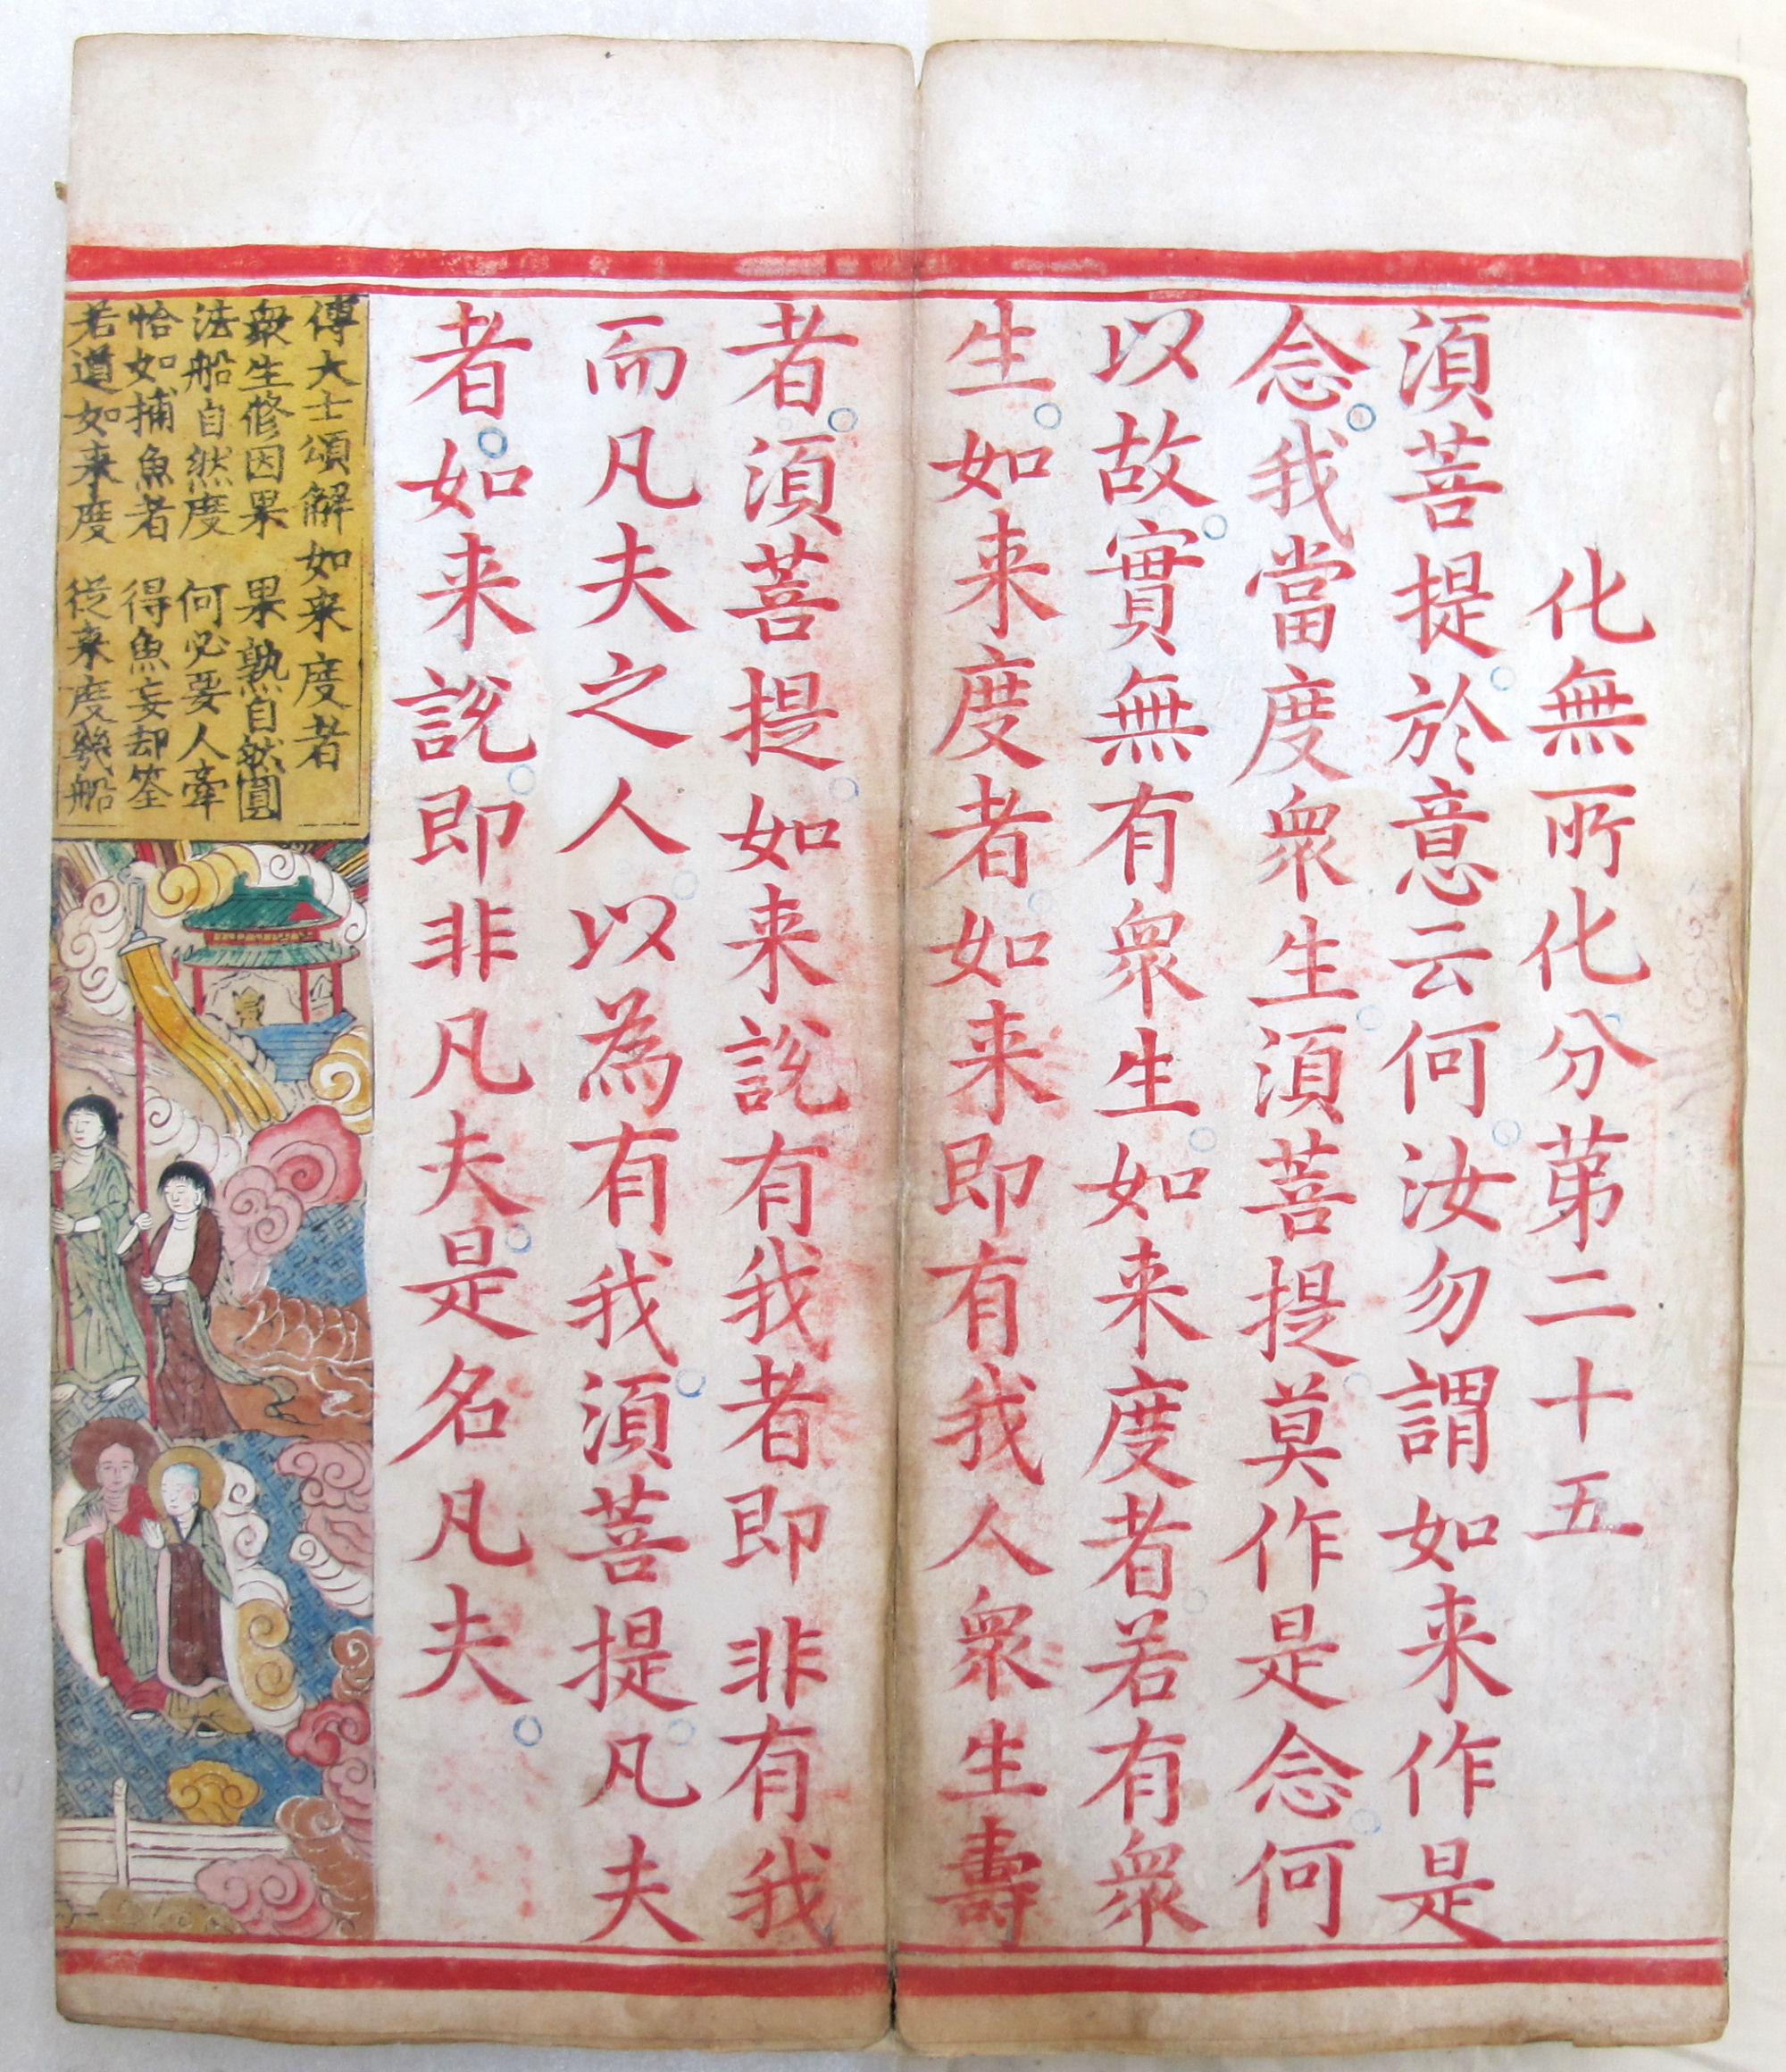 化無所化分第二十五
須菩提於意云何汝勿謂如来作是
念我當度衆生須菩提莫作是念何
以故實無有衆生如来度者若有衆
生如来度者如来即有我人衆生壽
者須菩提如来說有我者即非有我
而凡夫之人以為有我須菩提凡夫
者如来說即非凡夫是名凡夫
傅大士頌解如来度者
衆生修因果 果熟自然圓
法船自然度 何必要人牽
恰如捕魚者 得魚妄却筌
若道如来度 從来度幾船